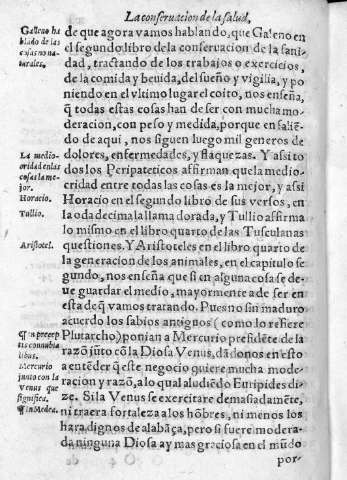 La conseruacion de la salud,
Galeno ha
blado de las
cosas no na-
turales.
de que agora vamos hablando, que Galeno en
el segundo libro de la conseruacion de la sani-
dad, tractando de los trabajos o exercicios,
de la comida y beuida, del sueño y vigilia, y po
niendo en el vltimo lugar el coito, nos enseña,
q̃ todas estas cosas han de ser con mucha mo-
deracion, con peso y medida, porque en saliẽ-
do de aqui, nos siguen luego mil generos de
La medio-
cridad en las
cosas la me-
jor.
Horacio.
Tullio.
Aristotel.
dolores, enfermedades, y flaquezas. Y assi to
dos los Peripateticos affirman que la medio-
cridad entre todas las cosas es la mejor, y assi
Horacio en el segundo libro de sus versos, en
la oda decima la llama dorada, y Tullio affirma
lo mismo en el libro quarto de las Tusculanas
questiones. Y Aristoteles en el libro quarto de
la generacion de los animales, en el capitulo se
gundo, nos enseña que si en alguna cosa se de-
ue guardar el medio, mayormente a de ser en
esta de q̃ vamos tratando. Pues no sin maduro
acuerdo los sabios antiguos (como lo refiere
¶ In precep
tis connubia
libus.
Mercurio
junto con la
Venus que
significa.
¶ In Medea.
Plutarcho) ponian a Mercurio presidẽte de la
razõ jũto cõ la Diosa Venus, dãdonos en esto
a entẽder q̃ este negocio quiere mucha mode-
racion y razõ, a lo qual aludiẽdo Euripides di-
ze. Si la Venus se exercitare demasiadamẽte,
ni traera fortaleza a los hõbres, ni menos los
hara dignos de alabãça, pero si fuere modera-
da ninguna Diosa ay mas graciosa en el mũdo
por-